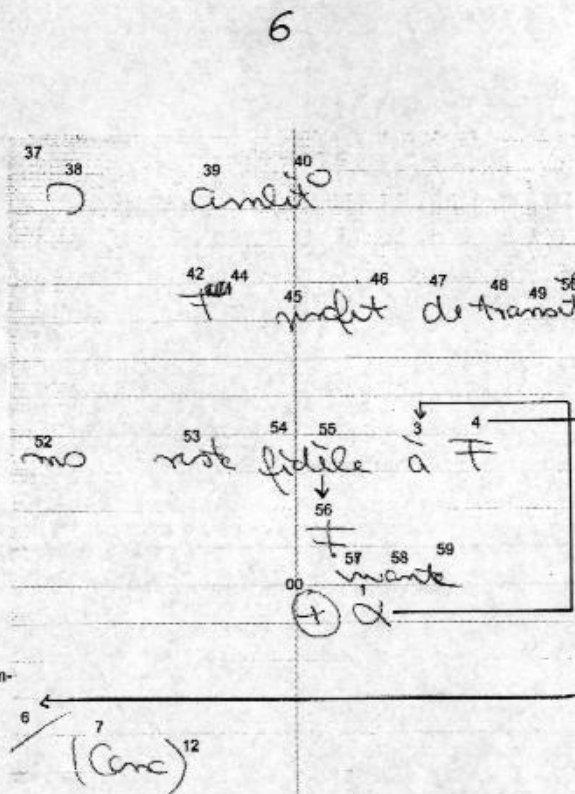 6
37
38 39 40
42 44 45 46 47 48 49 50
profit de transit
52 53 54 55 3 4
mo reste fidèle à F
56
F
57 58 59
00
+ α
6
7 12